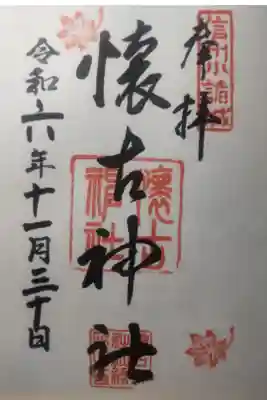 奉拝
信州小諸城
懐古神社
懐古神社
令和六年十一月三十日